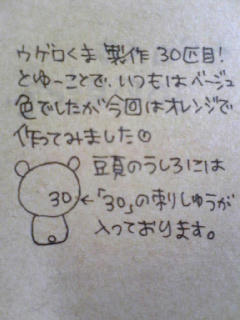 ウゲロくま 製作 30匹目!
とゆーことで、いつもはベージュ
色でしたが今回はオレンジで
作ってみました
豆頁のうしろには
30 ←「30」の刺しゅうが
入っております。